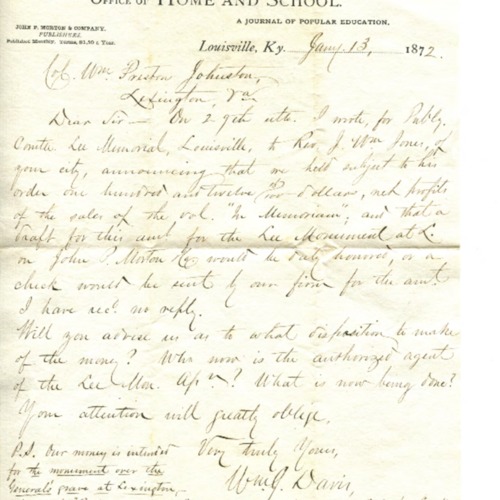 OFFICE OF HOME AND SCHOOL.
A JOURNAL OF POPULAR EDUCATION.
JOHN P. MORTON & COMPANY,
PUBLISHERS.
Published Monthly. Terms, $1.50 a Year.
Louisville, Ky. Jany. 13, 1872.
Col. Wm Preston Johnston,
Lexington, Va
Dear Sir— On 29th ulto. I wrote, for Publg.
Comtte Lee Memorial, Louisville, to Rev. J. Wm Jones, of
your city, announcing that we held subject to his
order one hundred and twelve dollars, net profits
of the sales of the vol. "In Memoriam"; and that a
draft for this amt for the Lee Monument at L
on John P. Morton & Co would be duly honored, or a
check would be sent by our firm for the amt
I have recd. no reply.
Will you advise us as to what disposition to make
of the money? Who now is the authorized agent
of the Lee Mon. Assn? What is now being done?
Your attention will greatly oblige,
Very truly Yours,
Wm. J. Davis,
P.S. Our money is intended
for the monument over the
General's grave at Lexington,